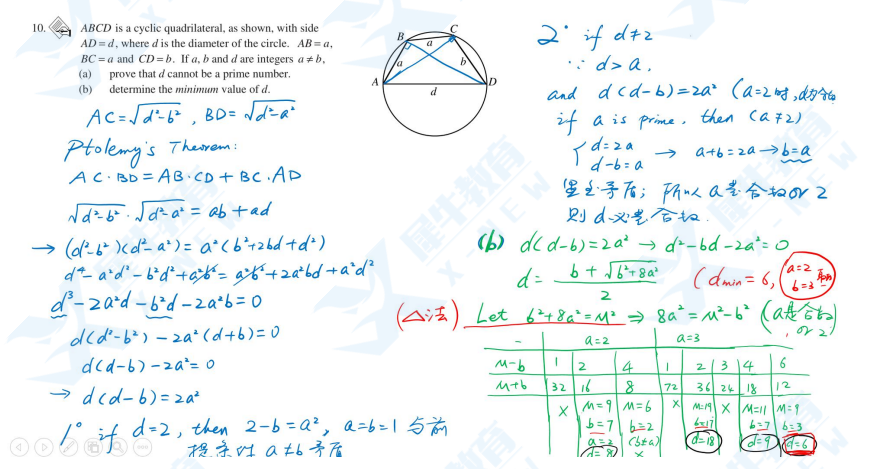 10. ABCD is a cyclic quadrilateral, as shown, with side
AD = d, where d is the diameter of the circle. AB = a,
BC = a and CD = b. If a, b and d are integers a ≠ b,
(a) prove that d cannot be a prime number.
(b) determine the minimum value of d.
A B C D a a b d
AC=√d²-b² , BD= √d²-a²
Ptolemy's Theorem:
AC·BD = AB·CD + BC·AD
√d²-b² · √d²-a² = ab + ad
→ (d²-b²)(d²-a²) = a²(b²+2bd+d²)
d⁴-a²d²-b²d²+a²b² = a²b²+2a²bd+a²d²
d³-2a²d-b²d-2a²b=0
d(d²-b²)-2a²(d+b)=0
d(d-b)-2a²=0
→ d(d-b)=2a²
1° if d=2, then 2-b=a², a=b=1 与前
提条件 a≠b 矛盾
2° if d≠2
∵ d>a,
and d(d-b)=2a² (a=2时,
if a is prime, then (a≠2)
{ d=2a
d-b=a → a+b=2a → b=a
矛盾; 所以 a是合数or 2
则 d 是合数.
(b) d(d-b)=2a² → d²-bd-2a²=0
d= b+√b²+8a² / 2 (dmin=6, a=2 b=3
(△法) Let b²+8a²=M² ⇒ 8a²=M²-b² (a是合数, or 2)
- a=2 a=3
M-b 1 2 4 1 2 3 4 6
M+b 32 16 8 72 36 24 18 12
X M=9 M=6 X M=19 X M=11 M=9
b=7 b=2 b=17 b=7 b=3
a=2 (b≠a) d=18 d=9 d=6
d=8 X